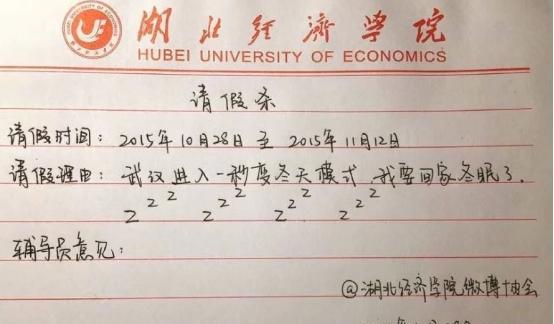 湖北经济学院
HUBEI UNIVERSITY OF ECONOMICS
请假条
请假时间：2015年10月28日 至 2015年11月12日
请假理由：武汉进入一秒变冬天模式，我要回家冬眠了.
z z z z z z z z z z z z
辅导员意见：
@湖北经济学院微博协会